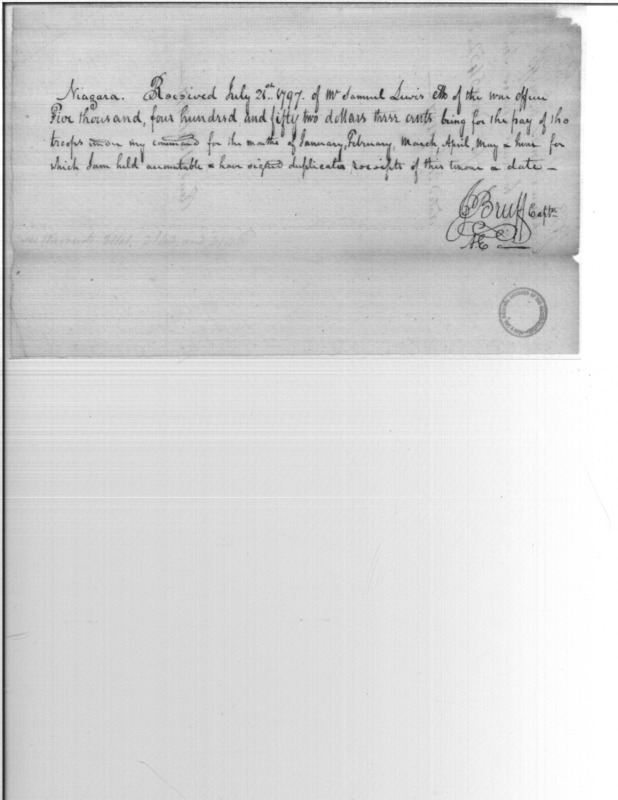 Niagara. Received July 21st. 1797. of Mr Samuel Lewis Clk of the war office
Five thousand, four hundred and fifty two dollars three cents being for the pay of the
troops my command for the months of January, February, March, April, May & June for
which I am held accountable & have signed duplicate receipts of this tenor & date —
Bruff Captn.